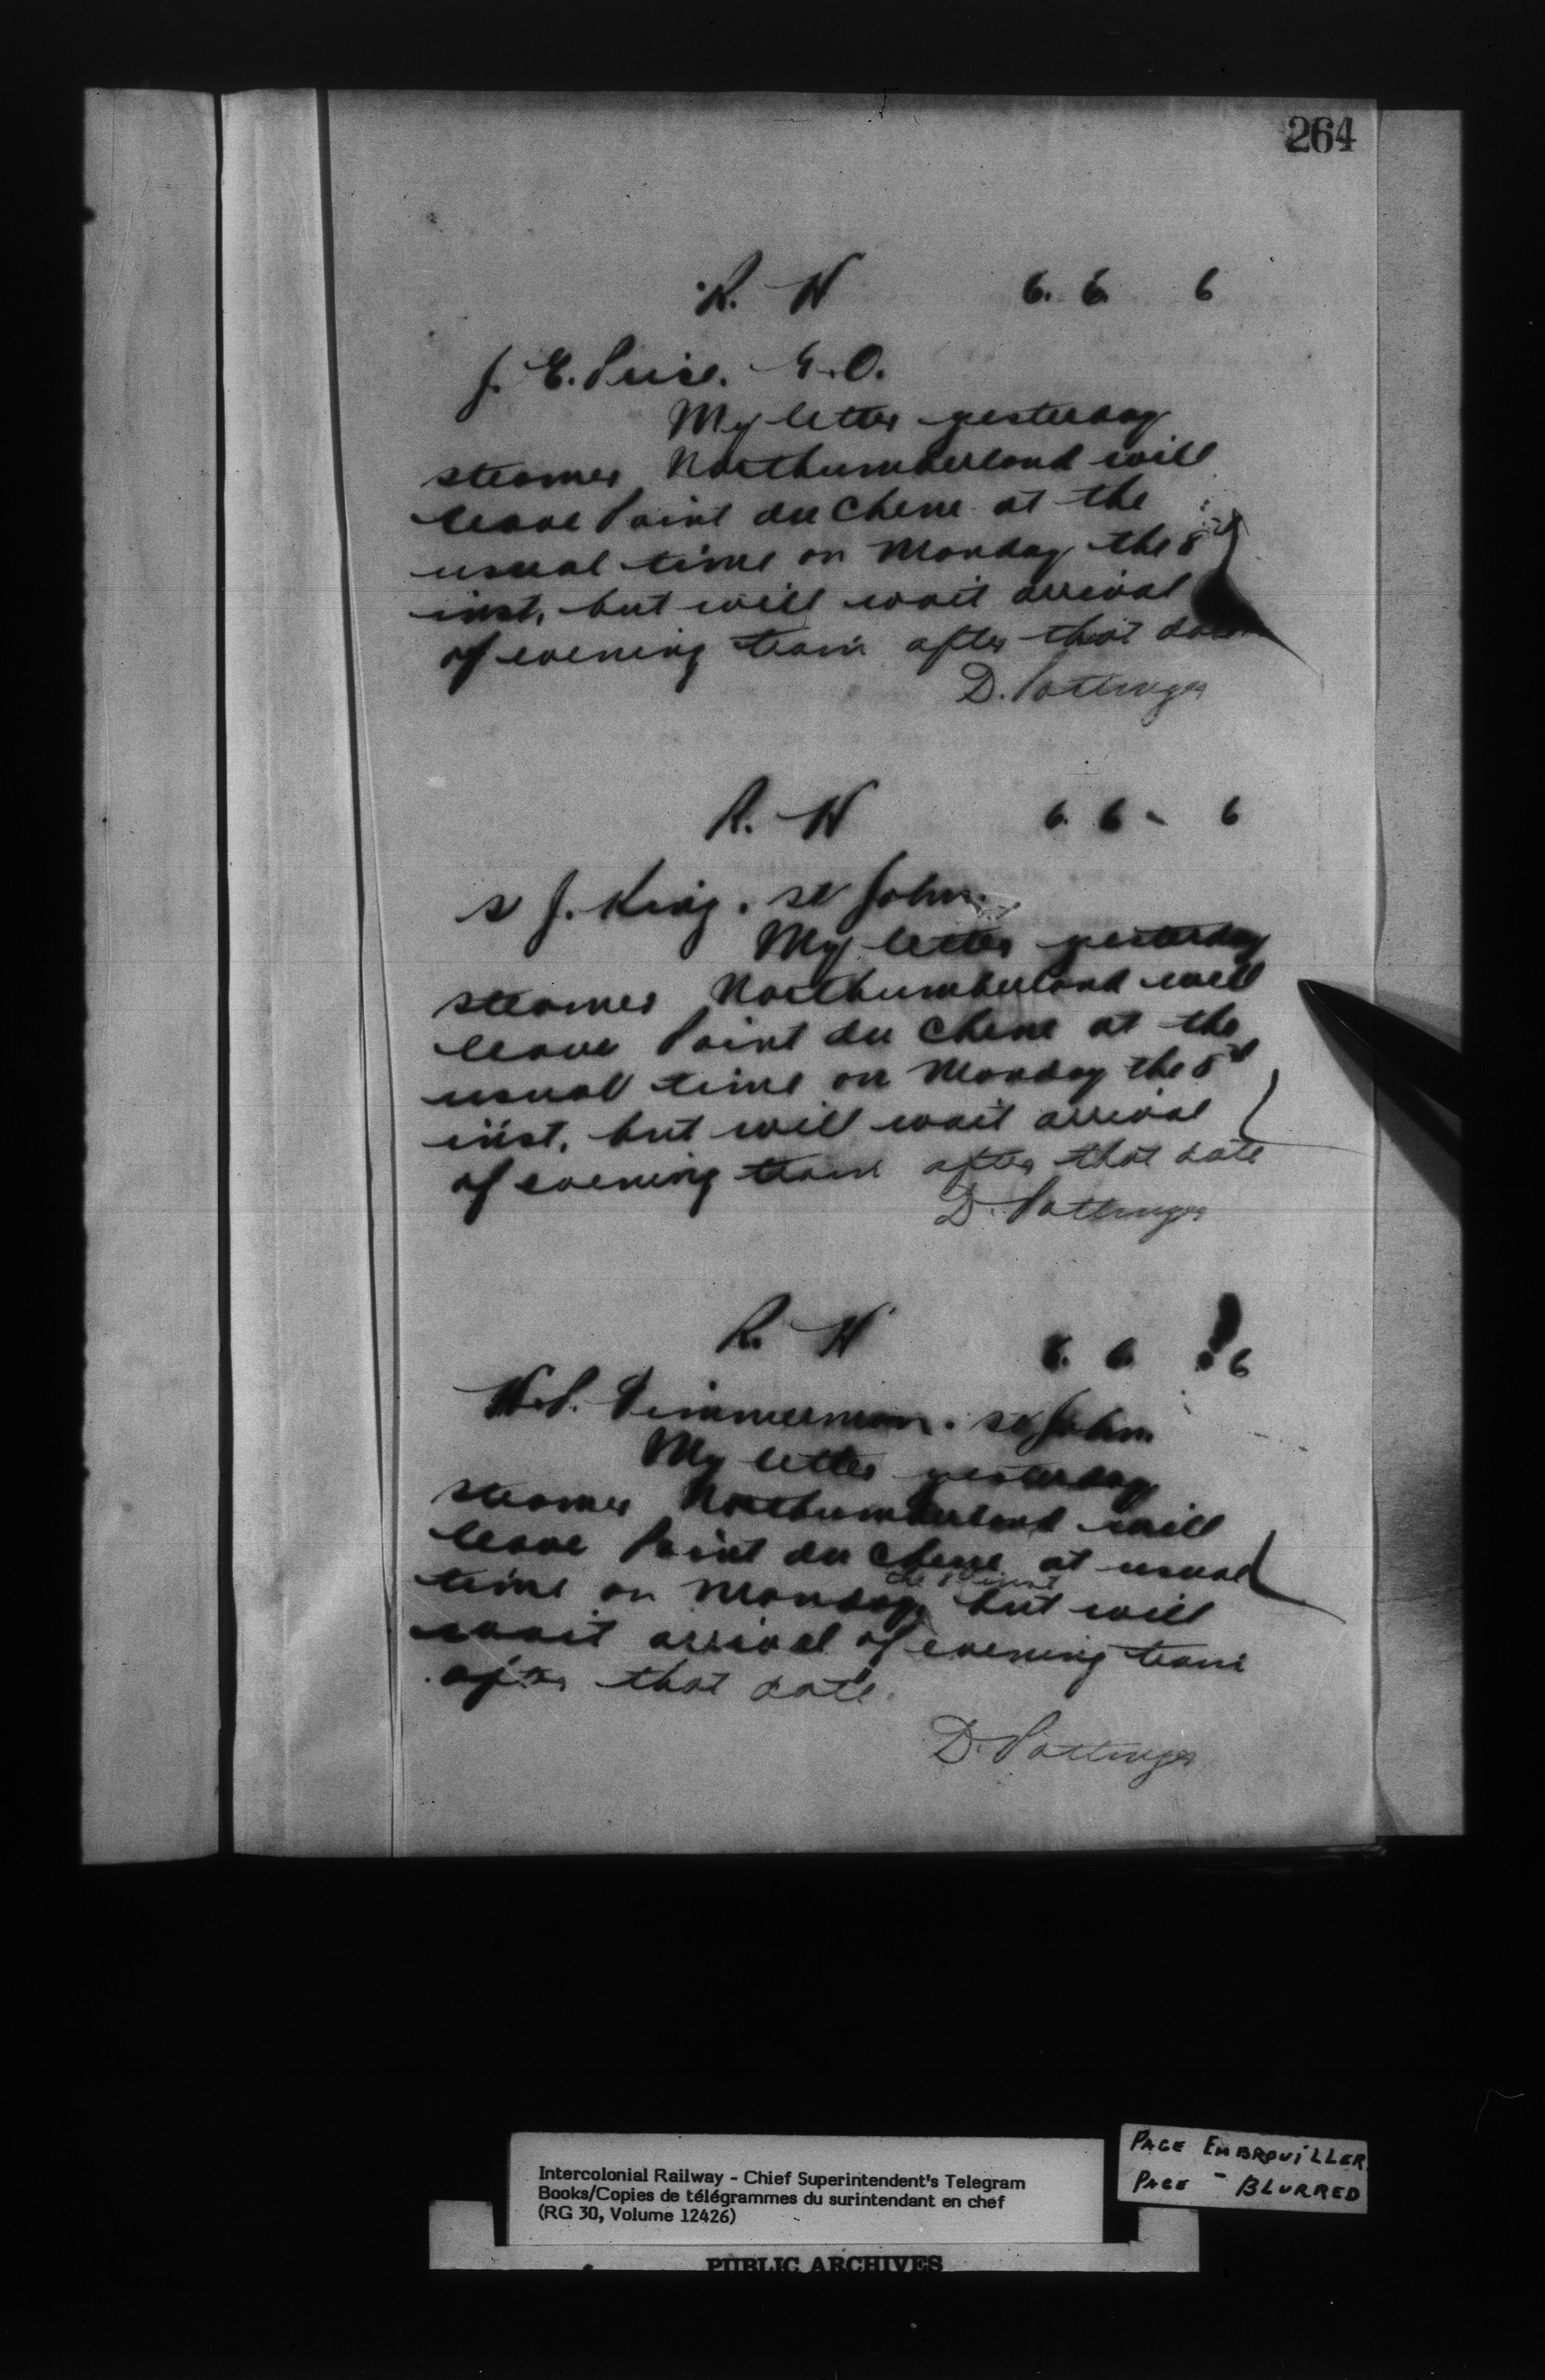 264
R. W 6. 6. 6
J. E. Price. G.O.
My letter yesterday
steamer Northumberland will
leave Point du Chene at the
usual time on Monday the 8th
inst, but will wait arrival
of evening train after that date
D. Pottinger
R. W 6. 6 - 6
S J. King. St John.
My letter yesterday
steamer Northumberland will
leave Point du Chene at the
usual time on Monday the 8th
inst, but will wait arrival
of evening train after that date
D. Pottinger
R. W 6. 6 6
St John.
My letter yesterday
steamer Northumberland will
leave Point du Chene at usual
time on Monday the 8th inst but will
wait arrival of evening train
after that date.
D. Pottinger
Intercolonial Railway - Chief Superintendent's Telegram
Books/Copies de télégrammes du surintendant en chef
(RG 30, Volume 12426)
PUBLIC ARCHIVES
PAGE EMBROUILLER
PAGE - BLURRED